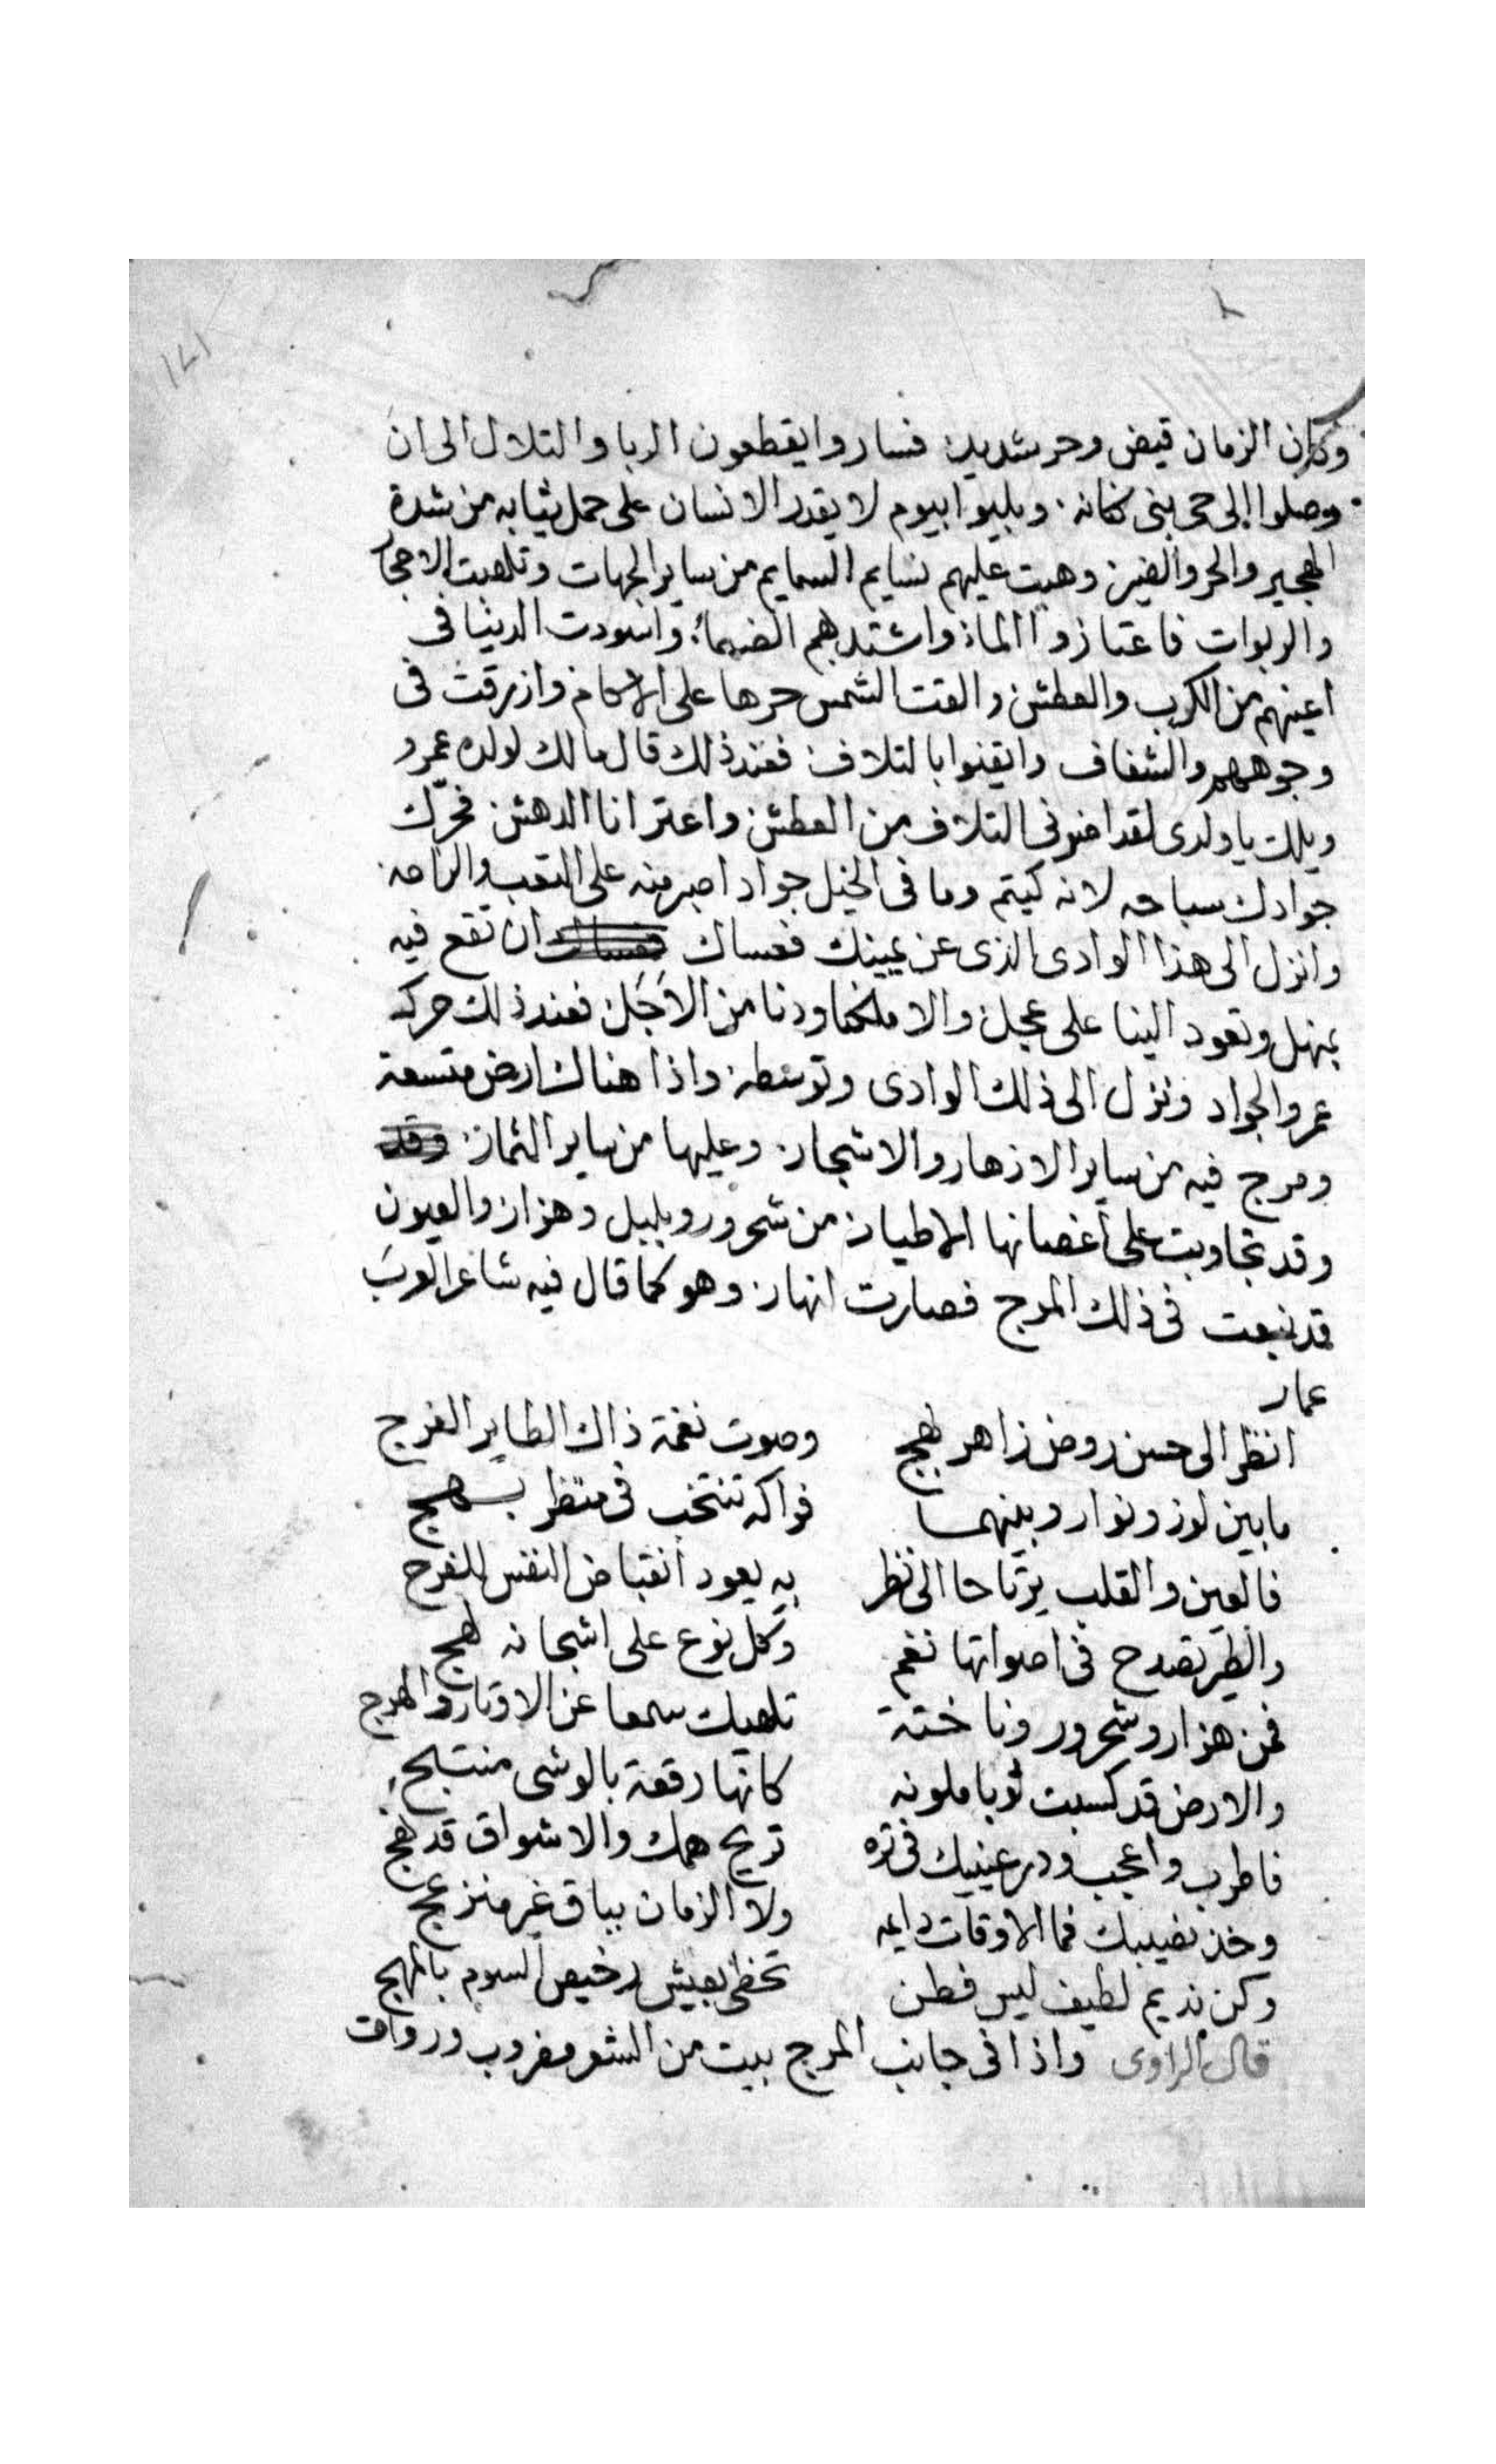 وكان الزمان قيض وحر شديد فساروا يقطعون الربا والتلال الى ان
وصلوا الى حى بنى كنانه وبليوا بيوم لا يقدر الانسان على حمل ثيابه من شدة
الهجير والحر وهبت عليهم نسايم السمايم من ساير الجهات وتلهبت الاحجار
والربوات فاعتازوا الماء واشتد بهم الضما واسودت الدنيا فى
اعينهم من الكرب والعطش والقت الشمس حرها على الاكام وازرقت فى
وجوههم والشفاف وايقنوا بالتلاف فعند ذلك قال مالك لولده عمرو
ويلك يا ولدى لقد اضر فى التلاف من العطش واعترانا الدهش فحرك
جوادك سباحه لانه كيتم وما فى الخيل جواد اصبر منه على التعب والراحه
وانزل الى هذا الوادى الذى عن يمينك فعساك ان تقع فيه
بمنهل وتعود الينا على عجل والا هلكنا ودنا من الاَجَل فعند ذلك حركه
عمرو الجواد ونزل الى ذلك الوادى وتوسطه واذا هناك ارض متسعة
ومرج فيه من ساير الازهار والاشجار وعليها من ساير الثمار
وقد تجاوبت على أغصانها الاطيار من شحرور وبلبل وهزار والعيون
قد نبعت فى ذلك المرج فصارت انهار وهو كما قال فيه شاعر العرب
عمار
انظر الى حسن روض زاهر بهج وصوت نغمة ذاك الطاير الغرج
ما بين لوز ونوار وبينهما فواكه تنتخب فى منظر بهج
فالعين والقلب يرتاحا الى نظر به يعود انقباض النفس للفرج
والطير تصدح فى اصواتها نغم وكل نوع على اشجانه لهج
فمن هزار وشحرور وفاختة تلهيك سمعا عن الاوتار والهرج
والارض قد كسبت ثوبا ملونه كانها رقعة بالوشى منتسج
فاطرب واعجب ودر عينيك فى نزه تريح همك والاشواق قد تهج
وخذ نصيبك فما الاوقات دايمه ولا الزمان بباق غير منزعج
وكن نديم لطيف ليس فطن تحظى بعيش رخيص السوم بالمهج
قال الراوى واذا فى جانب المرج بيت من الشعر مضروب ورواق